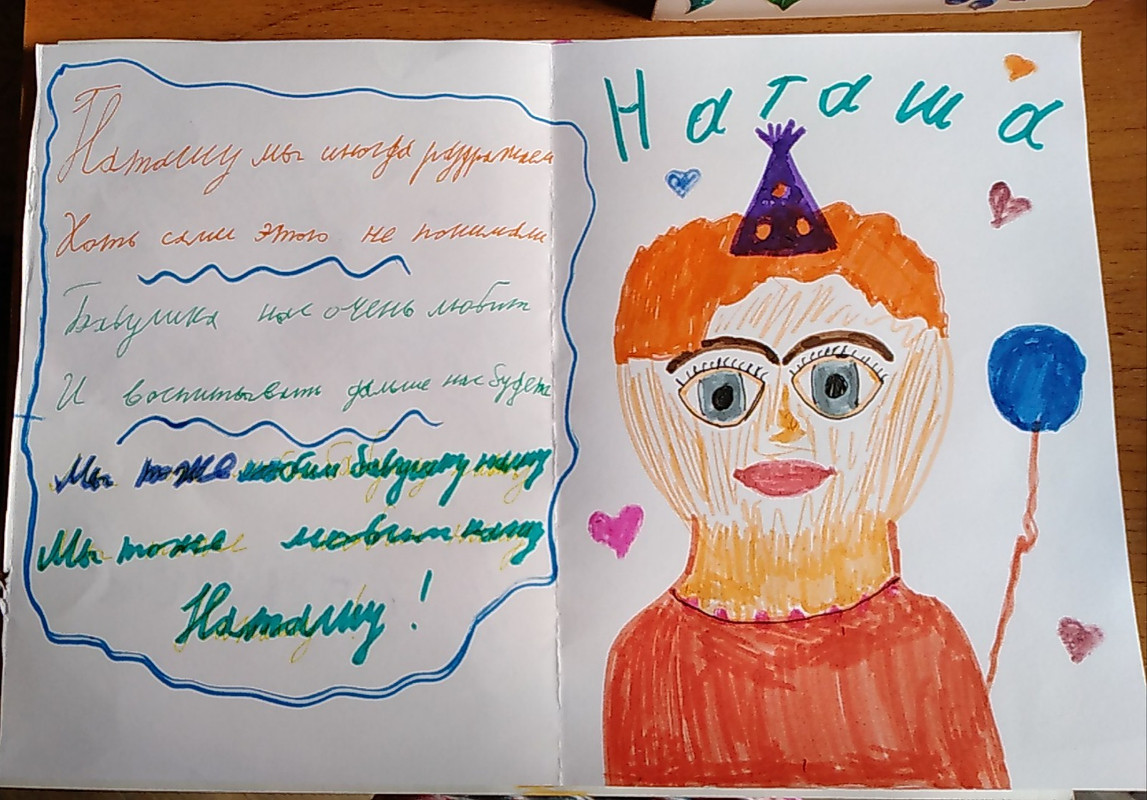 Наташу мы иногда раздражаем
Хоть сами этого не понимаем
Бабушка нас очень любит
И воспитывать дальше нас будет
Мы тоже любим бабушку нашу
Мы тоже любим нашу
Наташу!
Наташа